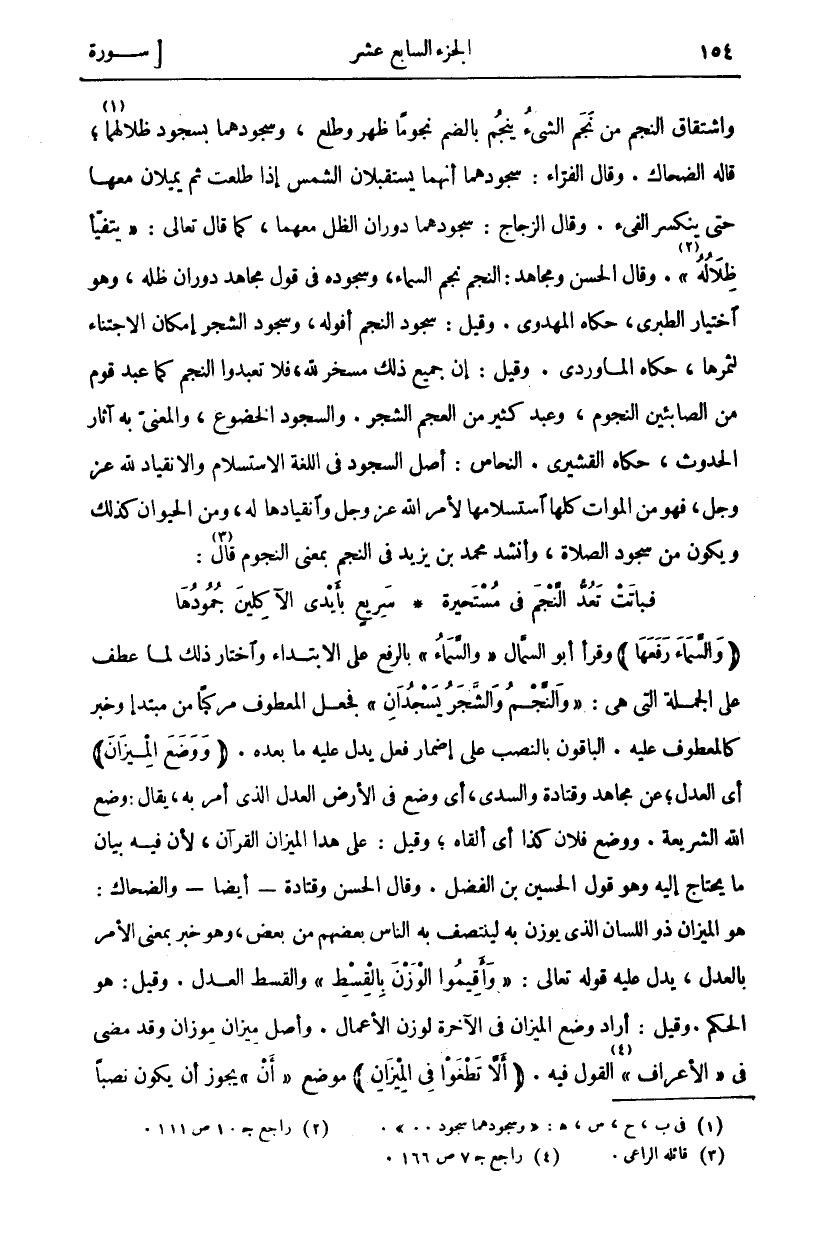 ١٥٤ الجزء السابع عشر [ ســـورة
واشتقاق النجم من نَجَم الشىءُ ينجُم بالضم نجومًا ظهر وطلع ، وسجودهما بسجود ظلالهما(١) ؛
قاله الضحاك . وقال الفرّاء : سجودهما أنهما يستقبلان الشمس إذا طلعت ثم يميلان معهــا
حتى ينكسر الفىء . وقال الزجاج : سجودهما دوران الظل معهما ، كما قال تعالى : « يتفيّأ
ظِلَالُهُ(٢) » . وقال الحسن ومجاهد : النجم نجم السماء ، وسجوده فى قول مجاهد دوران ظله ، وهو
آختيار الطبرى ، حكاه المهدوى . وقيل : سجود النجم أفوله ، وسجود الشجر إمكان الاجتناء
لثمرها ، حكاه المــاوردى . وقيل : إن جميع ذلك مسخر لله ، فلا تعبدوا النجم كما عبد قوم
من الصابئين النجوم ، وعبد كثير من العجم الشجر . والسجود الخضوع ، والمعنىّ به آثار
الحدوث ، حكاه القشيرى . النحاس : أصل السجود فى اللغة الاستسلام والانقياد لله عز
وجل ، فهو من الموات كلها آستسلامها لأمر الله عز وجل وآنقيادها له ، ومن الحيوان كذلك
ويكون من سجود الصلاة ، وأنشد محمد بن يزيد فى النجم بمعنى النجوم قال(٣) :
فبـاتَتْ تَعُدُّ النَّجْمَ فى مُسْتَحيرة * سَرِيعٍ بأَيْدى الآكِلينَ جُمُودُهَا
( وَالسَّمَاءَ رَفَعَهَا ) وقرأ أبو السمَّال « والسَّمَاءُ » بالرفع على الابتــداء وآختار ذلك لمــا عطف
على الجمــلة التى هى : « وَالنَّجْــمُ وَالشَّجَرُ يَسْجُدَانِ » فجعــل المعطوف مركبًا من مبتدإ وخبر
كالمعطوف عليه . الباقون بالنصب على إضمار فعل يدل عليه ما بعده . ( وَوَضَعَ الْمِــيزَانَ )
أى العدل ؛ عن مجاهد وقتادة والسدى ، أى وضع فى الأرض العدل الذى أمر به ، يقال : وضع
الله الشريعة . ووضع فلان كذا أى ألقاه ؛ وقيل : على هدا الميزان القرآن ، لأن فيــه بيان
ما يحتاج إليه وهو قول الحسين بن الفضل . وقال الحسن وقتادة — أيضا — والضحاك :
هو الميزان ذو اللسان الذى يوزن به لينتصف به الناس بعضهم من بعض ، وهو خبر بمعنى الأمر
بالعدل ، يدل عليه قوله تعالى : « وَأَقِيمُوا الْوَزْنَ بِالْقِسْطِ » والقسط العــدل . وقيل : هو
الحكم . وقيل : أراد وضع الميزان فى الآخرة لوزن الأعمال . وأصل ميزان موزان وقد مضى
فى « الأعراف » القول(٤) فيه . ( أَلَّا تَطْغَوْا فِى الْمِيزَانِ ) موضع « أَنْ » يجوز أن يكون نصبًا
(١) فى ب ، ح ، س ، ه : « وسجودهما سجود . . » . (٢) راجع جـ ١٠ ص ١١١ .
(٣) قائله الراعى . (٤) راجع جـ ٧ ص ١٦٦ .